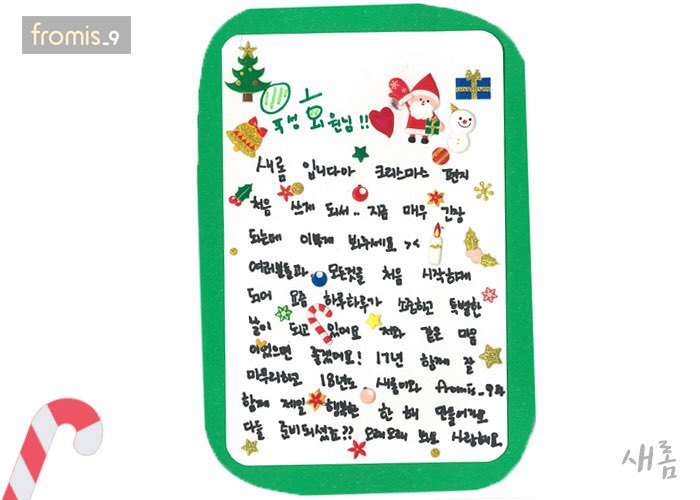 fromis_9
회원님 !!
새롬 입니다아 크리스마스 편지
처음 쓰게 되서.. 지금 매우 긴장
되는데 이쁘게 봐주세요 ><
여러분들과 모든것을 처음 시작하게
되어 요즘 하루하루가 소중하고 특별한
날이 되고 있어요 저와 같은 마음
이었으면 좋겠어요! 17년 함께 잘
마무리하고 18년도 새롬이와 fromis_9과
함께 제일 행복한 한 해 만들어가요
다들 준비되셨죠?? 오래오래 봐요 사랑해요.
새롬